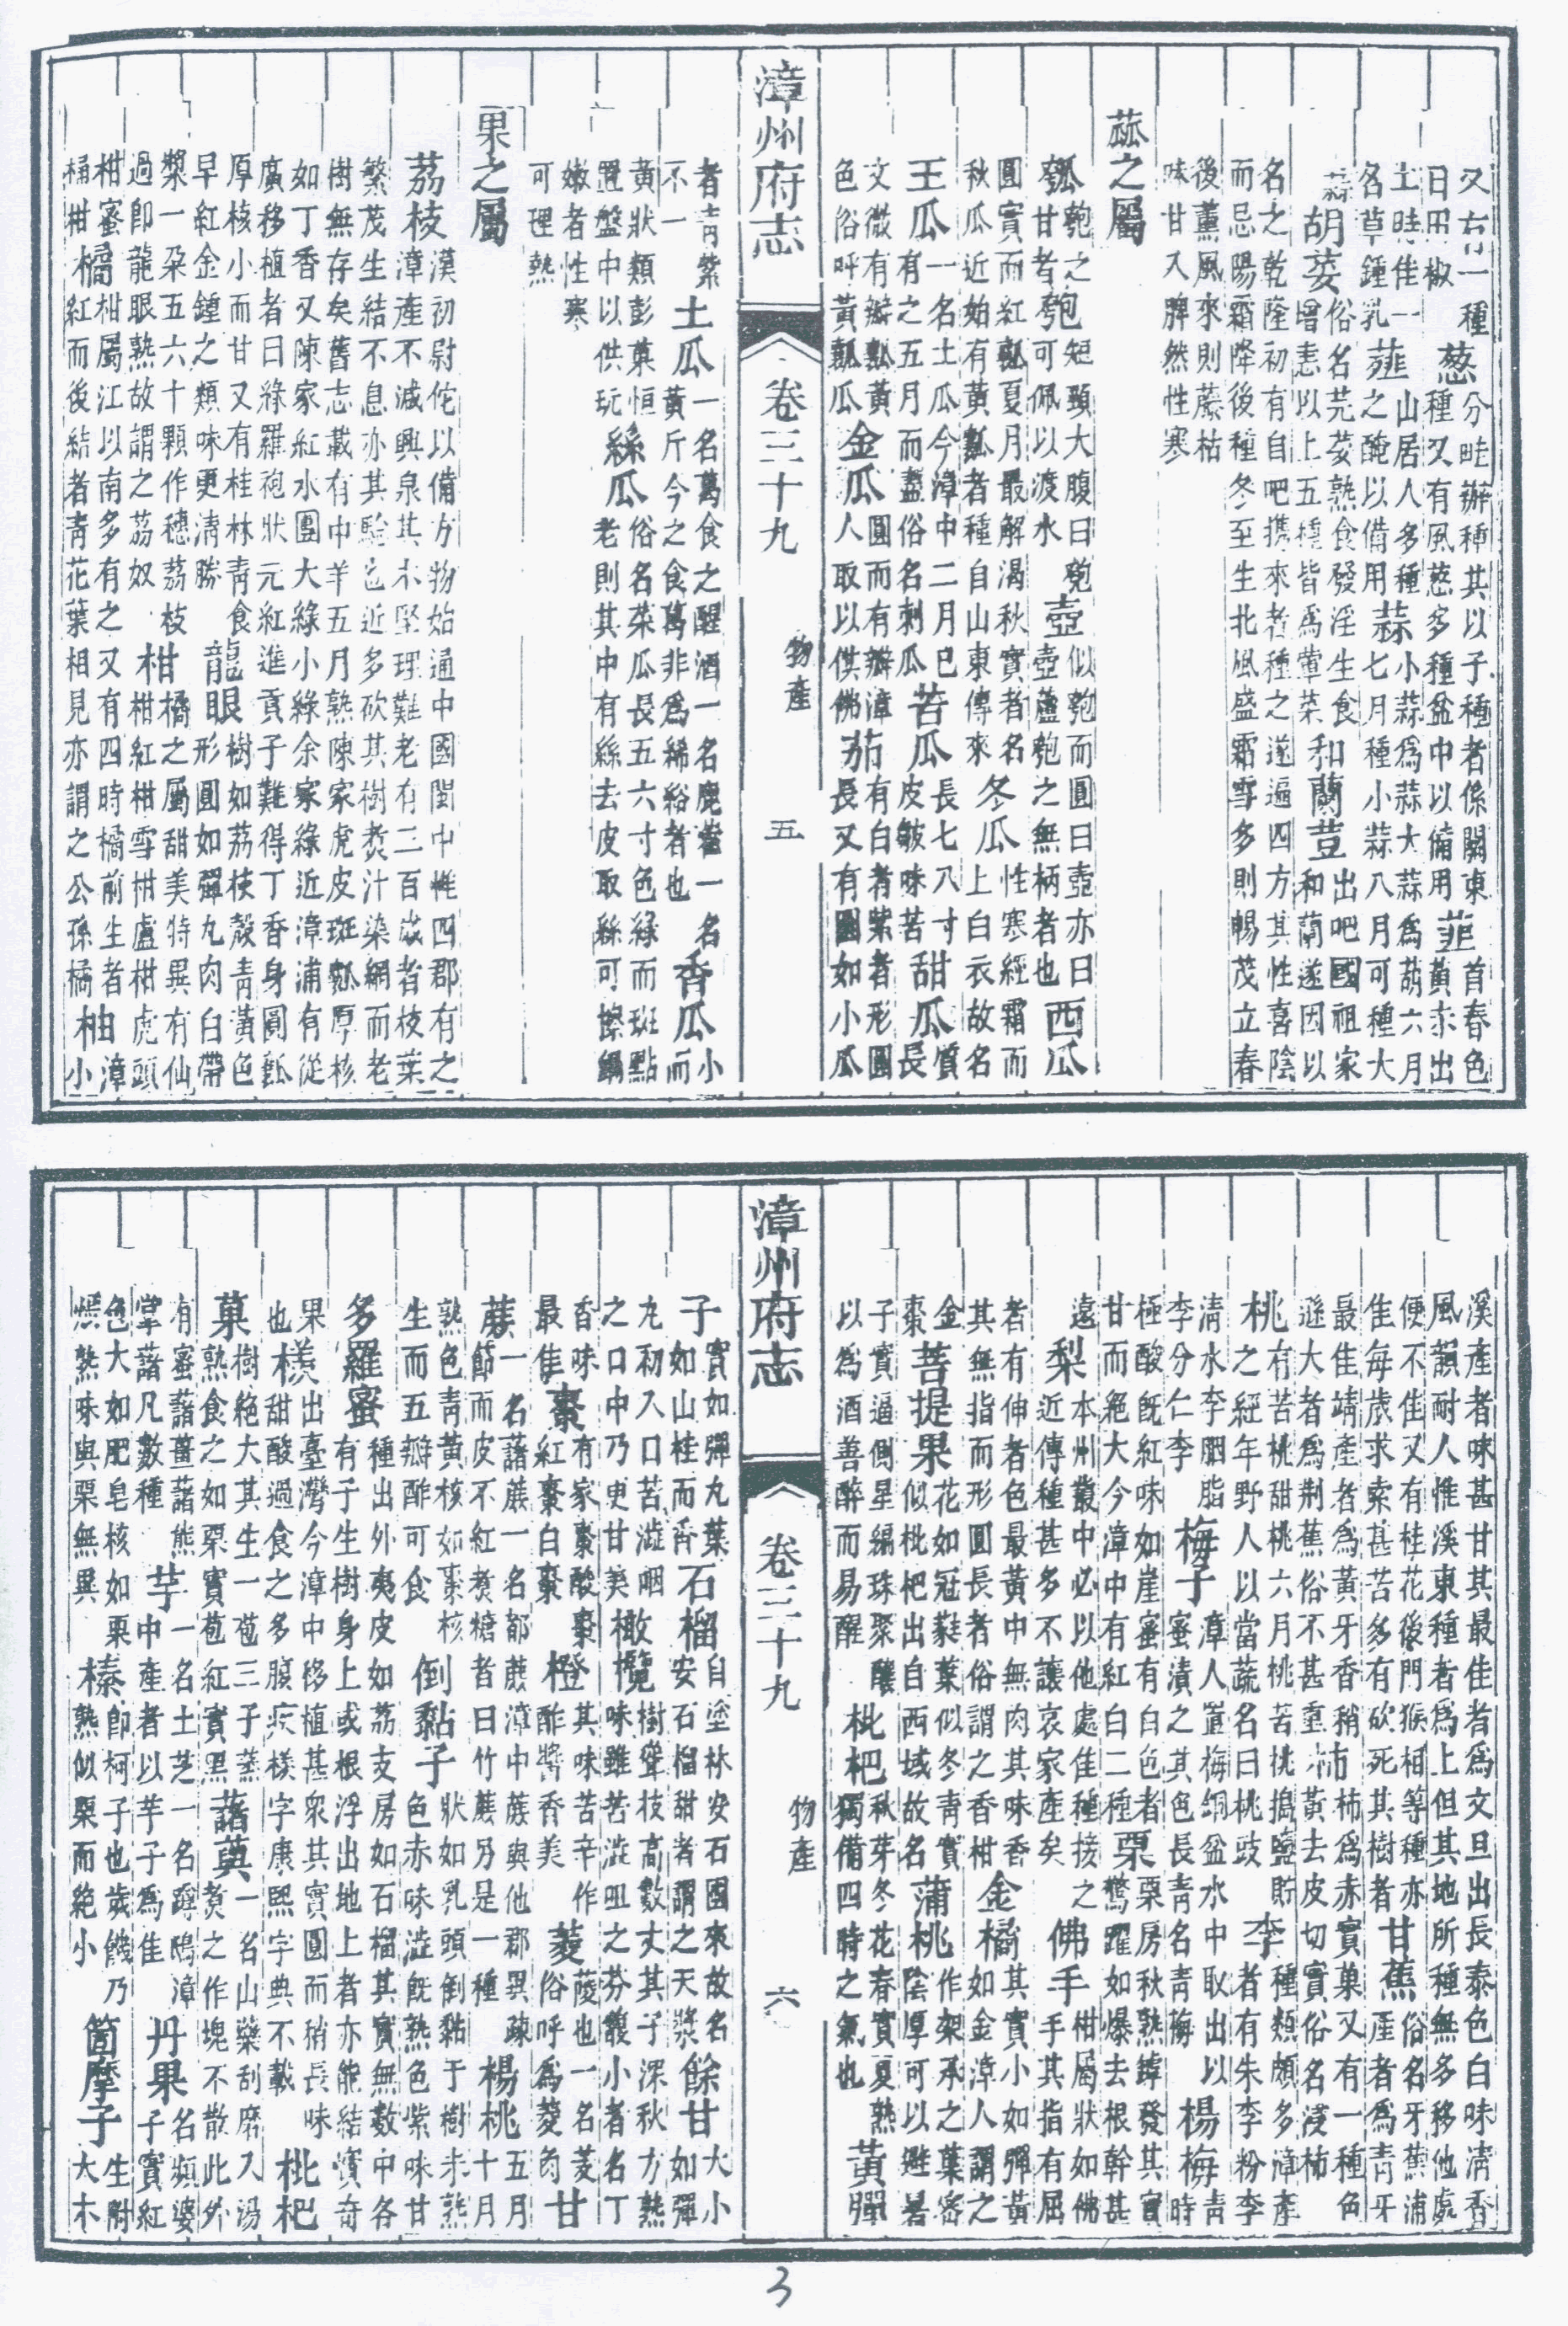 又有一種日用椒蔥分畦瓣種其以子種者係關東種又有風蔥多種盆中以備用韭首春色黃赤出
土畦佳一名草鍾乳薤山居人多種之醃以備用蒜小蒜為蒜大蒜為葫六月七月種小蒜八月可種大
蒜胡荽俗名芫荽熟食發淫生食增恚以上五種皆為葷菜和蘭荳出吧國祖家和蘭遂因以
名之乾隆初有自吧攜來者種之遂遍四方其性喜陰而忌陽霜降後種冬至生北風盛霜雪多則暢茂立春
後薰風來則藤枯味甘入脾然性寒
蓏之屬
瓠匏之甘者匏短頸大腹曰匏可佩以渡水壺似匏而圓曰壺亦曰壺蘆匏之無柄者也西瓜
圓實而紅瓤夏月最解渴秋實者名秋瓜近始有黃瓤者種自山東傳來冬瓜性寒經霜而上白衣故名
王瓜一名土瓜今漳中二月巳有之五月而盡俗名刺瓜苦瓜長七八寸皮皺味苦甜瓜質長
文微有瓣瓤黃色俗呼黃瓤瓜金瓜圓而有瓣漳人取以供佛茄有白者紫者形圓長又有圓如小瓜
漳州府志
卷三十九
物產
五
者青紫不一土瓜一名萵食之醒酒一名鹿藿一名黃斤今之食萵非為絺綌者也香瓜小而
黃狀類彭菓恒置盤中以供玩絲瓜俗名菜瓜長五六寸色綠而斑點老則其中有絲去皮取絲可擦鍋
嫩者性寒可理熱
果之屬
荔枝漢初尉佗以備方物始通中國閩中惟四郡有之漳產不減興泉其木堅理難老有二百歲者枝葉
繁茂生結不息亦其驗也近多砍其樹煑汁染網而老樹無存矣舊志載有中半五月熟陳家虎皮斑瓤厚核
如丁香又陳家紅水團大綠小綠余家綠近漳浦有從廣移植者曰綠羅袍狀元紅進貢子難得丁香身圓瓤
厚核小而甘又有桂林青食早紅金鍾之類味更清勝龍眼樹如荔枝殼青黃色形圓如彈丸肉白帶
漿一朶五六十顆作穗荔枝過卽龍眼熟故謂之荔奴柑橘之屬甜美特異有仙柑紅柑雪柑盧柑虎頭
柑蜜桶柑橘柑屬江以南多有之又有四時橘前生者紅而後結者青花葉相見亦謂之公孫橘柚漳小
溪產者味甚甘其最佳者為文旦出長泰色白味清香風韻耐人惟溪東種者為上但其地所種無多移他處
便不佳又有桂花後門猴相等種亦佳每歲求索甚苦多有砍死其樹者甘蕉俗名牙蕉浦產者為青牙
最佳靖產者為黃牙香稍遜大者為荊蕉俗不甚重柿柿為赤實菓又有一種色黃去皮切實俗名浸柿
桃有苦桃甜桃六月桃苦桃搗鹽貯之經年野人以當蔬名曰桃豉李種類頗多漳產者有朱李粉李
清水李胭脂李分仁李梅子漳人置梅銅盆水中取出以蜜漬之其色長青名青梅楊梅青時
極酸旣紅味如崖蜜有白色者甘而絕大今漳中有紅白二種栗栗房秋熟罅發其實驚躍如爆去根幹甚
遠梨本州叢中必以他處佳種接之近傳種甚多不讓哀家產矣佛手柑屬狀如佛手其指有屈
者有伸者色最黃中無肉其味香其無指而形圓長者俗謂之香柑金橘其實小如彈黃如金漳人謂之
金棗菩提果花如冠蕤葉似冬青實似枇杷出自西域故名蒲桃作架承之葉密陰厚可以避暑
子實逼側星編珠聚釀以為酒善醉而易醒枇杷秋芽冬花春實夏熟獨備四時之氣也黃彈
漳州府志
卷三十九
物產
六
子實如彈丸葉如山桂而香石榴自塗林安石國來故名安石榴甜者謂之天漿餘甘大小如彈
丸初入口苦澁咽之口中乃更甘美橄欖樹聳枝高數丈其子深秋方熟味雖苦澁咀之芬馥小者名丁
香味最佳棗有家棗酸棗紅棗白棗橙其味苦辛作酢醬香美菱薐也一名菱俗呼為菱肉甘
蔗一名藷蔗一名都蔗漳中蔗與他郡異疎節而皮不紅煑糖者曰竹蔗乃是一種楊桃五月十月
熟色青黃核如棗核生而五瓣酢可食倒黏子狀如乳頭倒黏于樹未熟色赤味澁旣熟色紫味甘
多羅蜜種出外夷皮如荔支房如石榴其實無數中各有子生樹身上或根浮出地上者亦能結實奇
果也檨出臺灣今漳中移植甚衆其實圓而稍長味甜酸過食之多膜疾檨字康熙字典不載枇杷
菓樹絕大其生一苞三子蒸熟食之如栗實苞紅實黑藷蓣一名山藥刮磨入湯煑之作塊不散此外
有蜜藷薑藷熊掌藷凡數種芋一名土芝一名蹲鴟漳中產者以芋子為佳丹果名頻婆子實紅
色大如肥皂核如栗煨熟味與栗無異榛卽柯子也歲饑乃熟似栗而絶小箇摩子生附大木
3